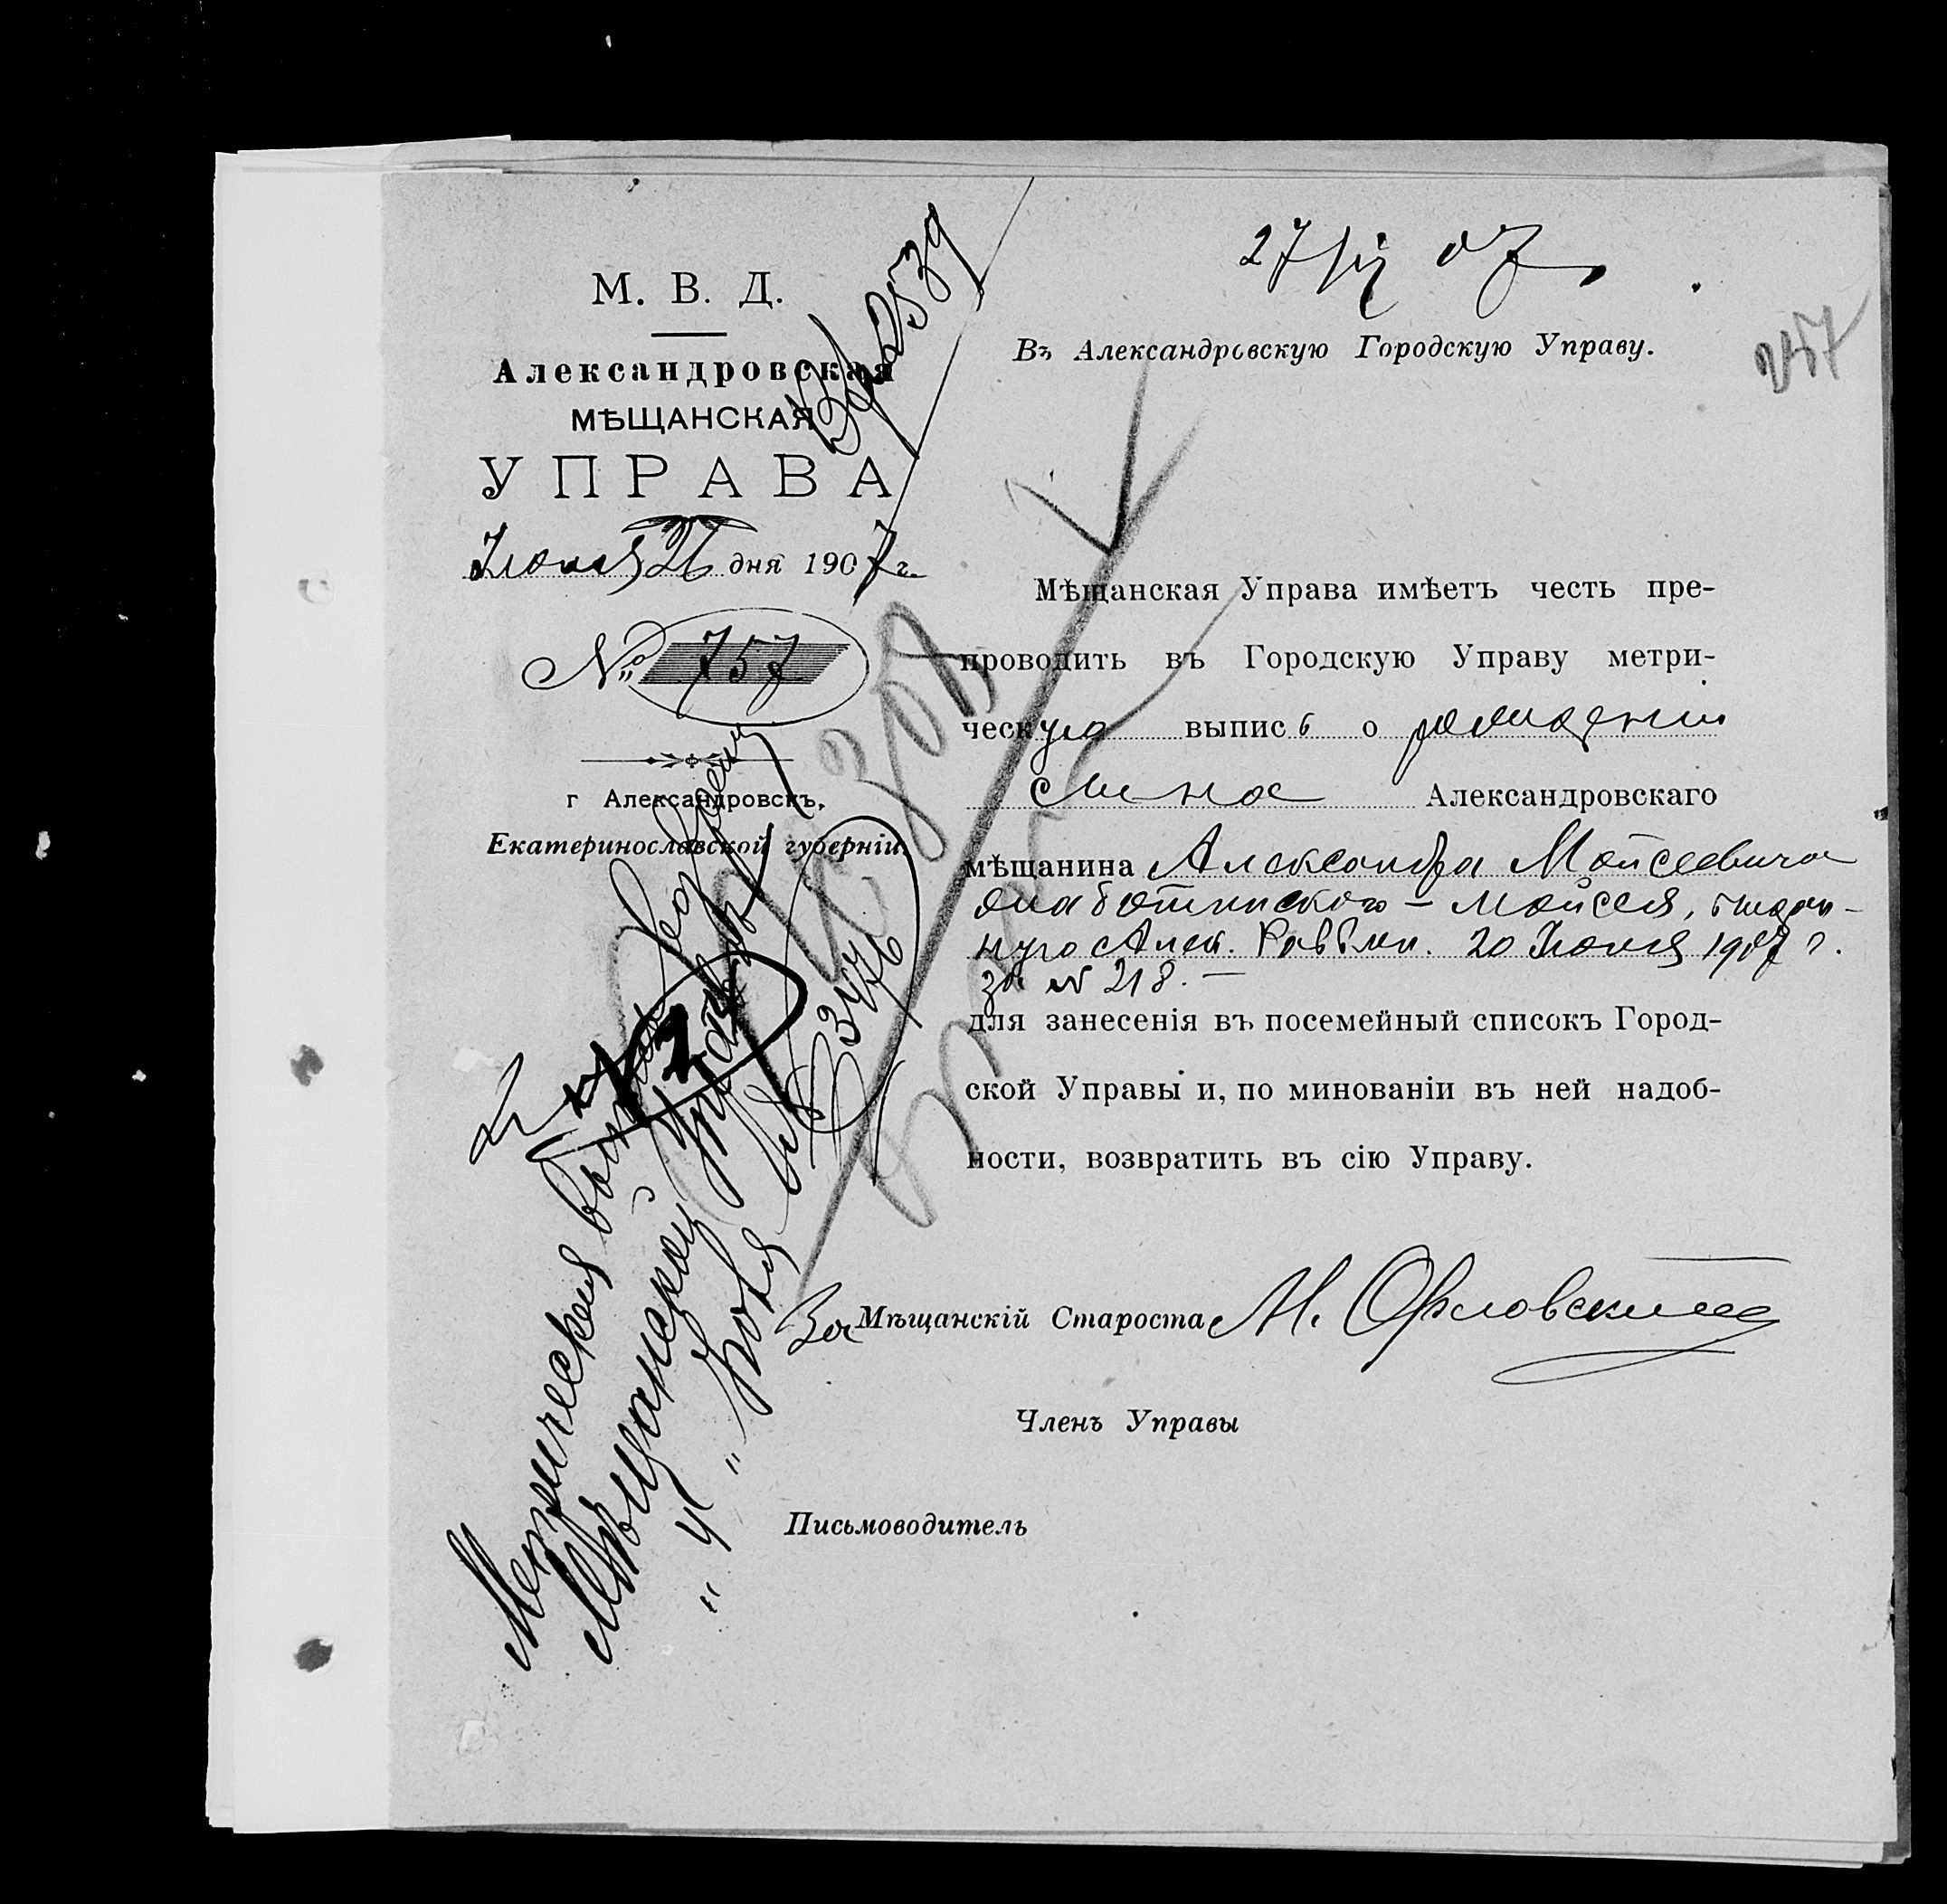 М. В. Д.
Александровская
МѢЩАНСКАЯ
УПРАВА
26 дня 1907 г.
№ 757
г Александровскъ,
Екатеринославской губерніи.
Вх 2539
27 07
Въ Александровскую Городскую Управу.
257
Мѣщанская Управа имѣетъ честь пре-
проводить въ Городскую Управу метри-
ческую выпись о рожденіи
сына Александровскаго
мѣщанина Александра Мойсеевича
Мойсея, выдан-
ную Алек. Раввин. 20 1907 г.
за № 218. —
для занесенія въ посемейный списокъ Город-
ской Управы и, по минованіи въ ней надоб-
ности, возвратить въ сію Управу.
За Мѣщанскій Староста М. Орловскій
Членъ Управы
Письмоводитель
Метрическая
Мѣщанской
"4" Іюля № 3476